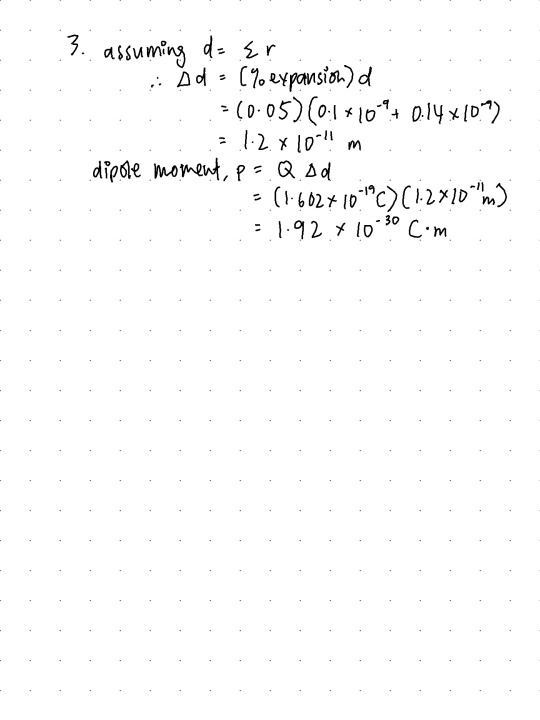 3. assuming d = Σ r
∴ Δd = (% expansion) d
= (0.05)(0.1 × 10⁻⁹ + 0.14 × 10⁻⁹)
= 1.2 × 10⁻¹¹ m
dipole moment, p = Q Δd
= (1.602 × 10⁻¹⁹C)(1.2 × 10⁻¹¹m)
= 1.92 × 10⁻³⁰ C·m